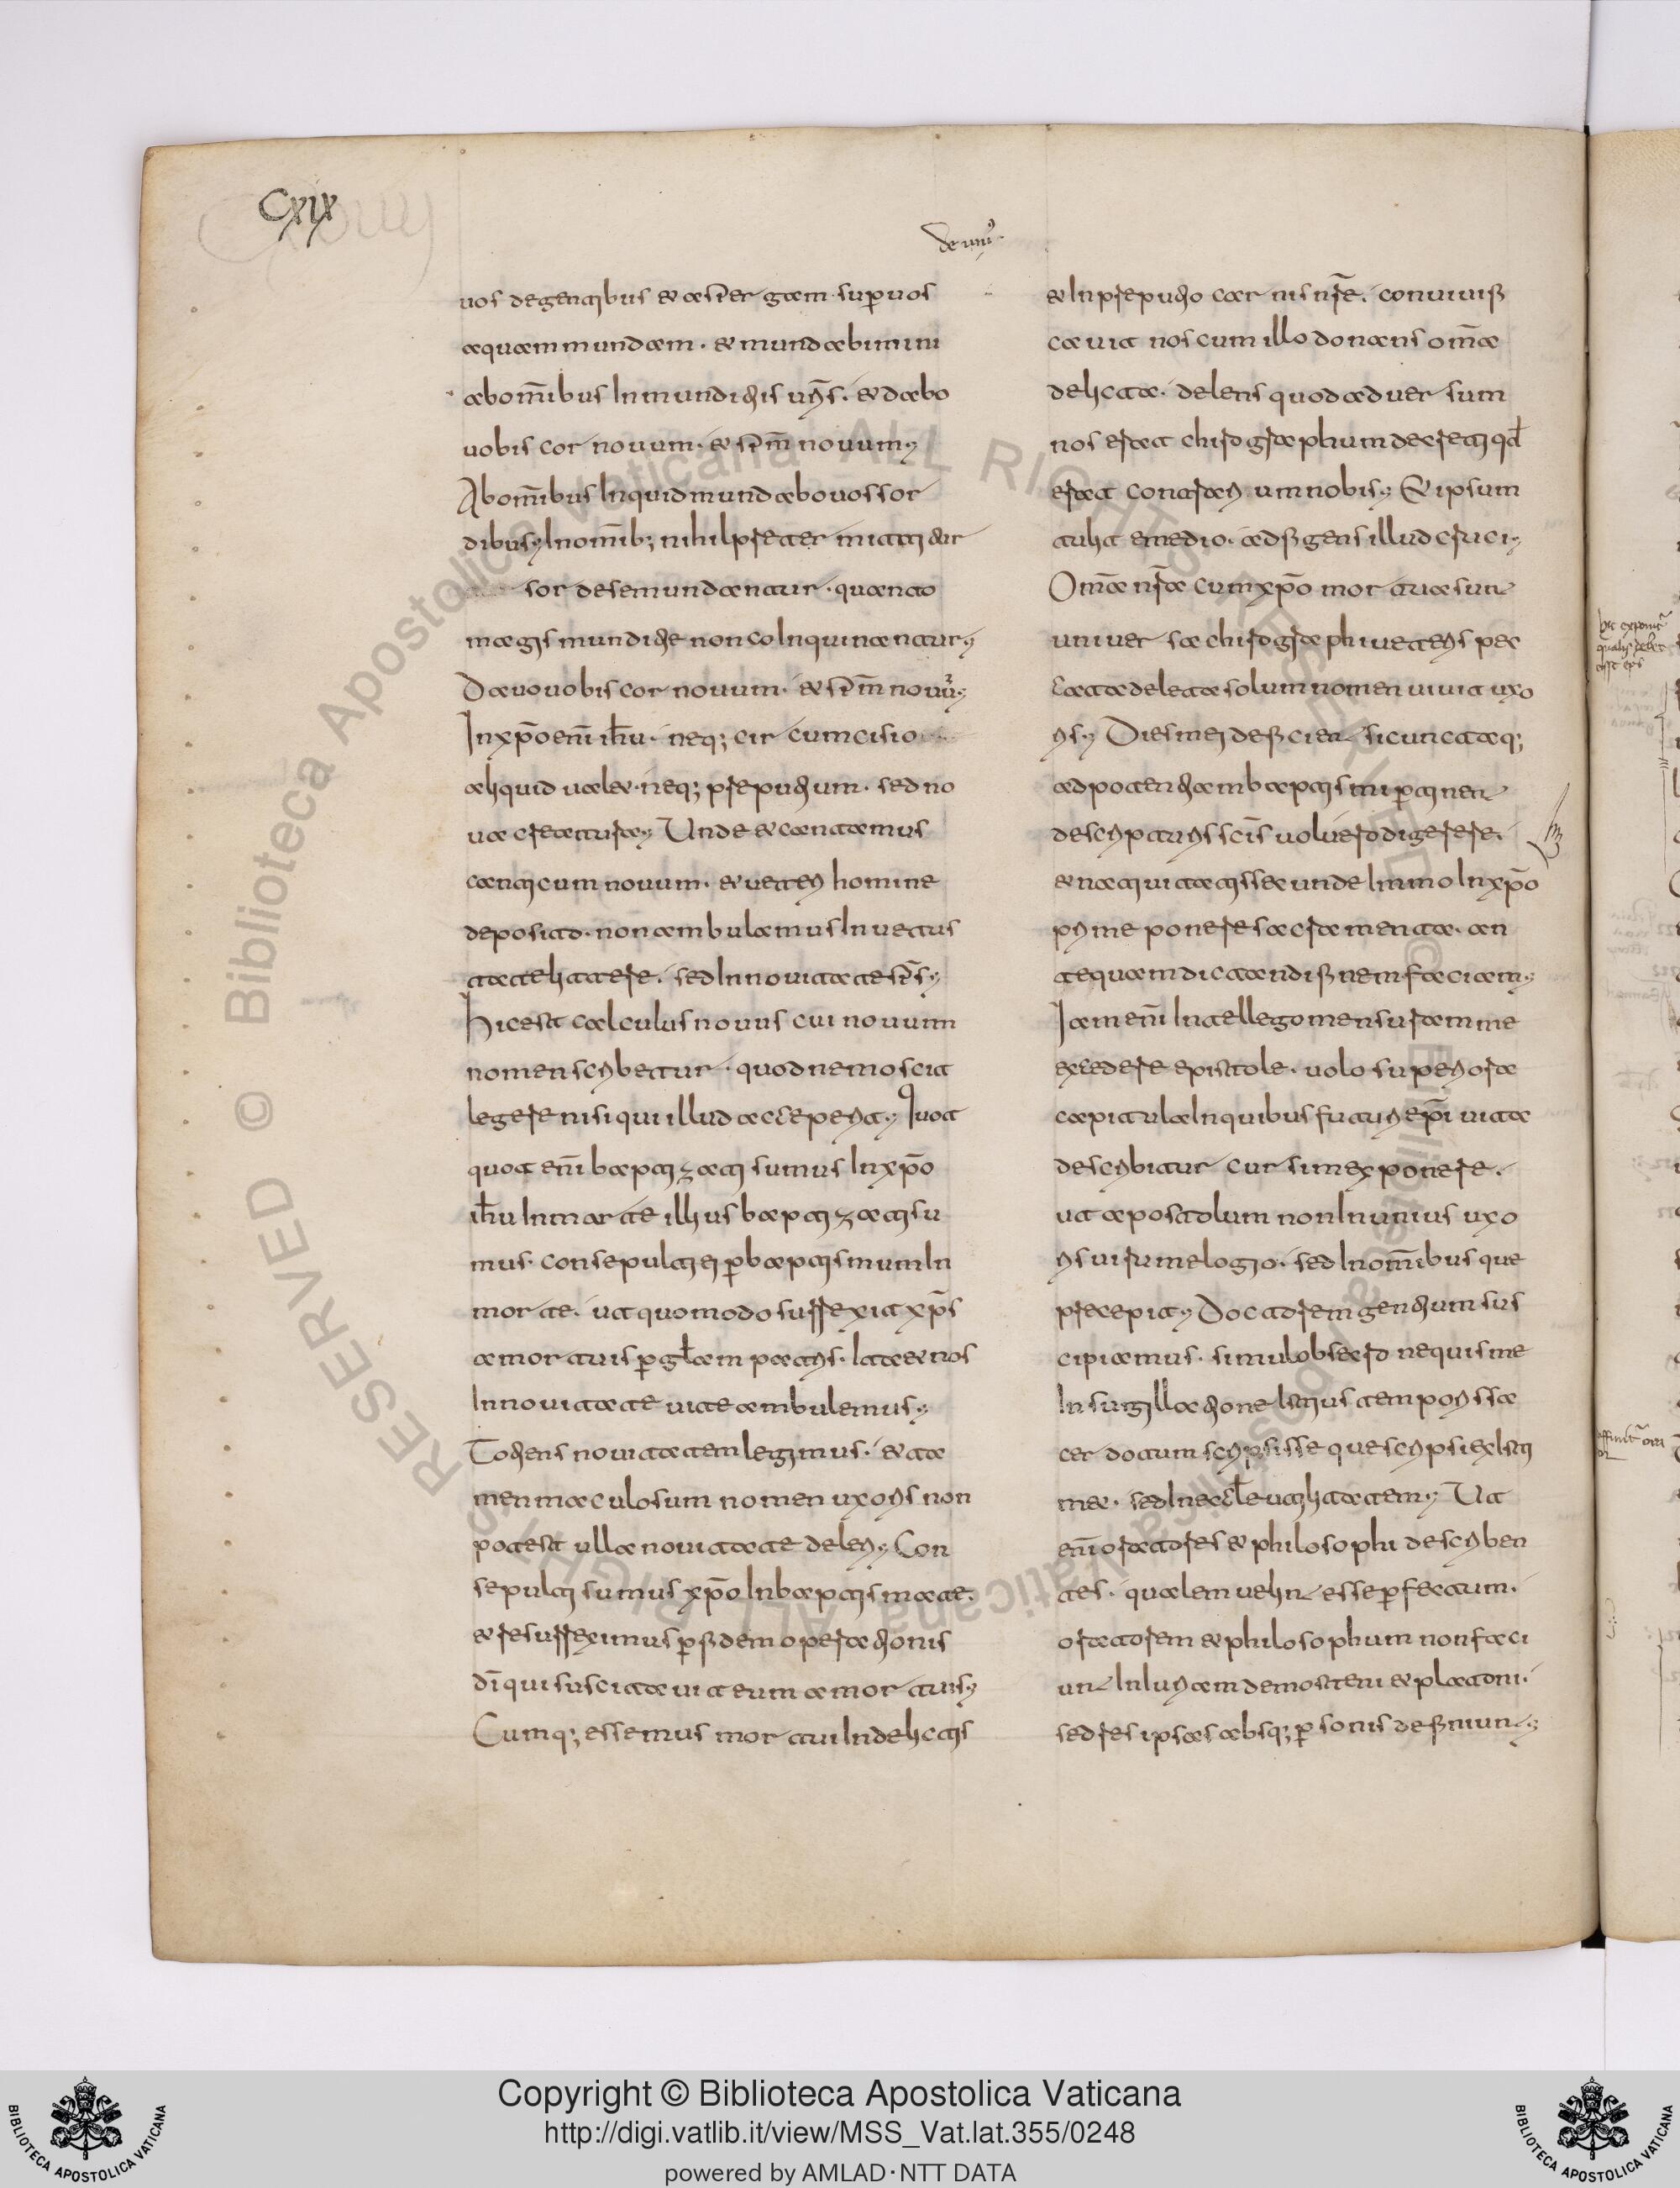 Cxix
de uni9
uos de gentibus & aspergam sup uos
aquam mundam. & mundabimini
ab om̅ibus Inmunditiis ur̅is. & dabo
uobis cor nouum. & sp̅m nouum;
Ab om̅ibus Inquid mundabo uos sor
dibus; In om̅ib; nihil pretermittitur
sordes emundantur. quanto
magis munditie non coInquinantur;
Dabo uobis cor nouum. & sp̅m nouu̅;
In xp̅o eni̅ ih̅u. neq; circumcisio
aliquid ualet. neq; preputium. sed no
ua creatura; Unde & cantamus
canticum nouum. & ueteri homine
deposito. non ambulamus In uetus
tate littere. sed In nouitate sp̅s;
Hic est calculus nouus cui nouum
nomen scribetur. quod nemo scit
legere nisi qui illud acceperit; Quot
quot eni̅ baptizati sumus In xp̅o
ih̅u In morte illius baptizati su
mus. consepulti ei p baptismum In
morte. ut quomodo surrexit xp̅s
a mortuis p gl̅am patris. Ita & nos
In nouitate uite ambulemus;
Totiens nouitatem legimus. & ta
men maculosum nomen uxoris non
potest ulla nouitate deleri; Con
sepulti sumus xp̅o In baptismate.
& resurreximus p fidem operationis
di̅ qui suscitauit eum a mortuis;
Cumq; essemus mortui In delictis
& In preputio carnis nr̅e. conuiuifi
cauit nos cum illo donans om̅a
delicta. delens quod aduersum
nos erat chirographum decreti qd̅
erat contrarium nobis; Et ipsum
tulit e medio. adfigens illud cruci;
Om̅a nr̅a cum xp̅o mortua sunt
uniuersa chirographi ueteris pec
cata deleta solum nomen uiuit uxo
ris; Dies me deficiet si cuncta q;
ad potentiam baptismi ptinent
de scripturis sc̅is uoluero digerere.
& natiuitatis secunde Immo In xp̅o
prime ponere sacramenta. an
tequam dictandi finem faciam;
Iam eni̅ Intellego mensuram me
excedere epistole. uolo superiora
capitula In quibus futuri ep̅i uita
describitur cursim exponere.
ut apostolum non In unius uxo
ris uiru̅ melogio. sed In om̅ibus que
precepit; Doctorem gentium sus
cipiamus. simul obsecro ne quis me
In sugillatione Istius temporis sa
cerdotum scripsisse que scripsi existi
met. sed In eccl̅e utilitatem; Ut
eni̅ oratores & philosophi describen
tes. qualem uelint esse pfectum.
oratorem & philosophum non faci
unt Iniuriam demosteni & platoni.
sed res ipsas absq; psonis definiunt;
hic exponit
qualis debet
esse eps
Copyright © Biblioteca Apostolica Vaticana
http://digi.vatlib.it/view/MSS_Vat.lat.355/0248
powered by AMLAD·NTT DATA
BIBLIOTECA APOSTOLICA VATICANA
BIBLIOTECA APOSTOLICA VATICANA